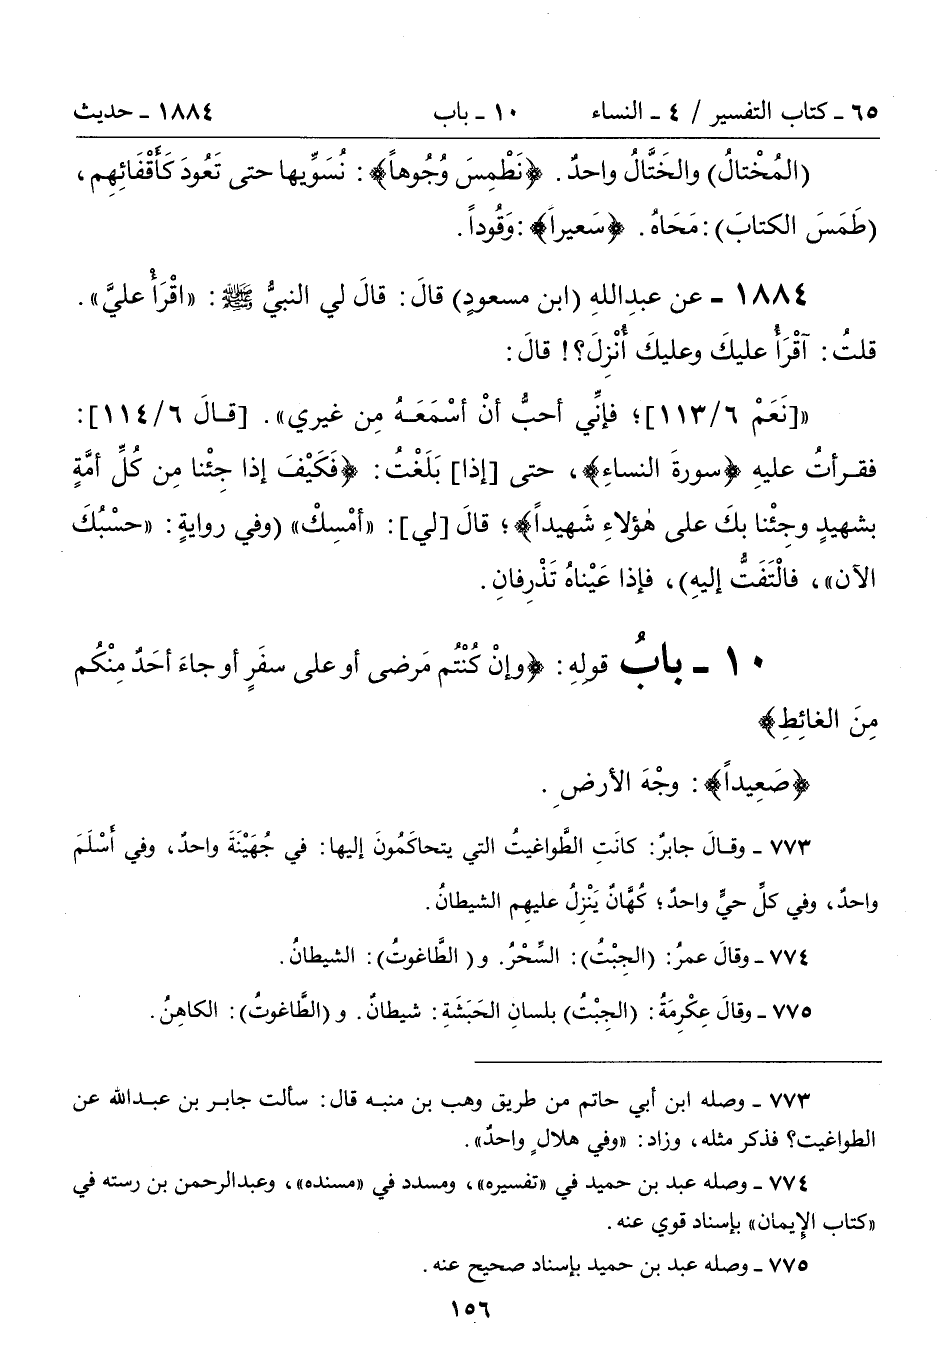 ٦٥ ـ كتاب التفسير / ٤ ـ النساء ١٠ ـ باب ١٨٨٤ ـ حديث
(المُخْتالُ) والخَتَّالُ واحدٌ. ﴿نَطْمِسَ وُجُوهاً﴾: نُسَوِّيها حتى تَعُودَ كَأَقْفَائِهِم،
(طَمَسَ الكتابَ): مَحَاهُ. ﴿سَعيراً﴾: وَقُوداً.
١٨٨٤ ـ عن عبدِاللهِ (ابن مسعودٍ) قالَ: قالَ لي النبيُّ ﷺ: «اقْرَأْ عليَّ».
قلتُ: آقْرَأُ عليكَ وعليكَ أُنْزِلَ؟! قالَ:
«[نَعَمْ ١١٣/٦]؛ فإنِّي أحبُّ أنْ أسْمَعَـهُ مِن غيري». [قـالَ ١١٤/٦]:
فقـرأتُ عليهِ ﴿سورةَ النساءِ﴾، حتى [إذا] بَلَغْتُ: ﴿فَكَيْفَ إذا جِئْنا مِن كُلِّ أمَّةٍ
بشهيدٍ وجِئْنا بكَ على هٰؤلاءِ شَهيداً﴾؛ قالَ [لي]: «أمْسِكْ» (وفي روايةٍ: «حسْبُكَ
الآن»، فالْتَفَتُّ إليهِ)، فإذا عَيْناهُ تَذْرِفانِ.
١٠ ـ بابُ قولِهِ: ﴿وإنْ كُنْتُم مَرضى أو على سفَرٍ أو جاءَ أحَدٌ مِنْكُم
مِنَ الغائطِ﴾
﴿صَعِيداً﴾: وجْهَ الأرضِ.
٧٧٣ ـ وقـالَ جابرٌ: كانَتِ الطَّواغيتُ التي يتحاكَمُونَ إليها: في جُهَيْنَةَ واحدٌ، وفي أسْلَمَ
واحدٌ، وفي كلِّ حيٍّ واحدٌ؛ كُهَّانٌ يَنْزِلُ عليهِم الشيطانُ.
٧٧٤ ـ وقالَ عمرُ: (الجِبْتُ): السِّحْرُ. و( الطَّاغوتُ): الشيطانُ.
٧٧٥ ـ وقالَ عِكْرِمَةُ: (الجِبْتُ) بلسانِ الحَبَشَةِ: شيطانٌ. و (الطَّاغوتُ): الكاهِنُ.
٧٧٣ ـ وصله ابن أبي حاتم من طريق وهب بن منبـه قال: سألت جابـر بن عبـدالله عن
الطواغيت؟ فذكر مثله، وزاد: «وفي هلالٍ واحدٌ».
٧٧٤ ـ وصله عبد بن حميد في «تفسيره»، ومسدد في «مسنده»، وعبدالرحمن بن رسته في
«كتاب الإِيمان» بإسناد قوي عنه.
٧٧٥ ـ وصله عبد بن حميد بإسناد صحيح عنه.
١٥٦